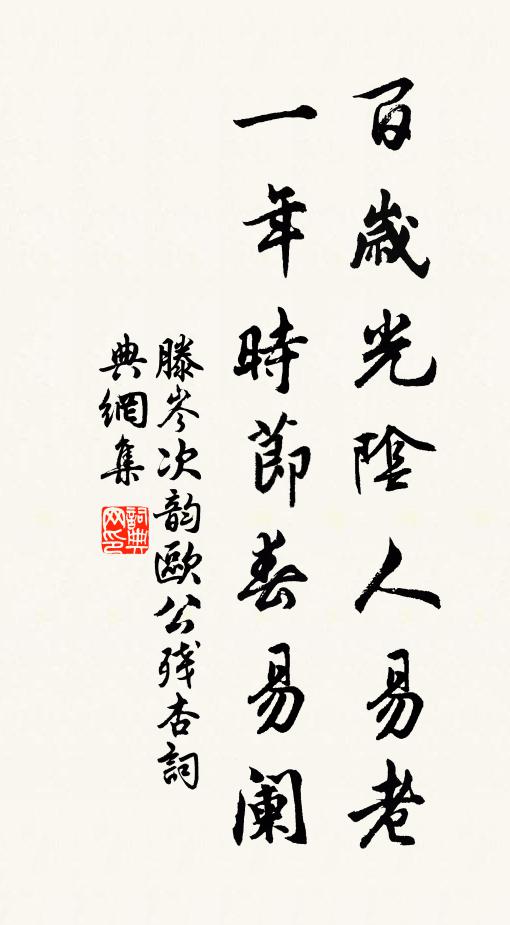 百歲光陰人易老
一年時節春易闌
滕岑次韵歐公殘杏詞
典網集
詞典網印